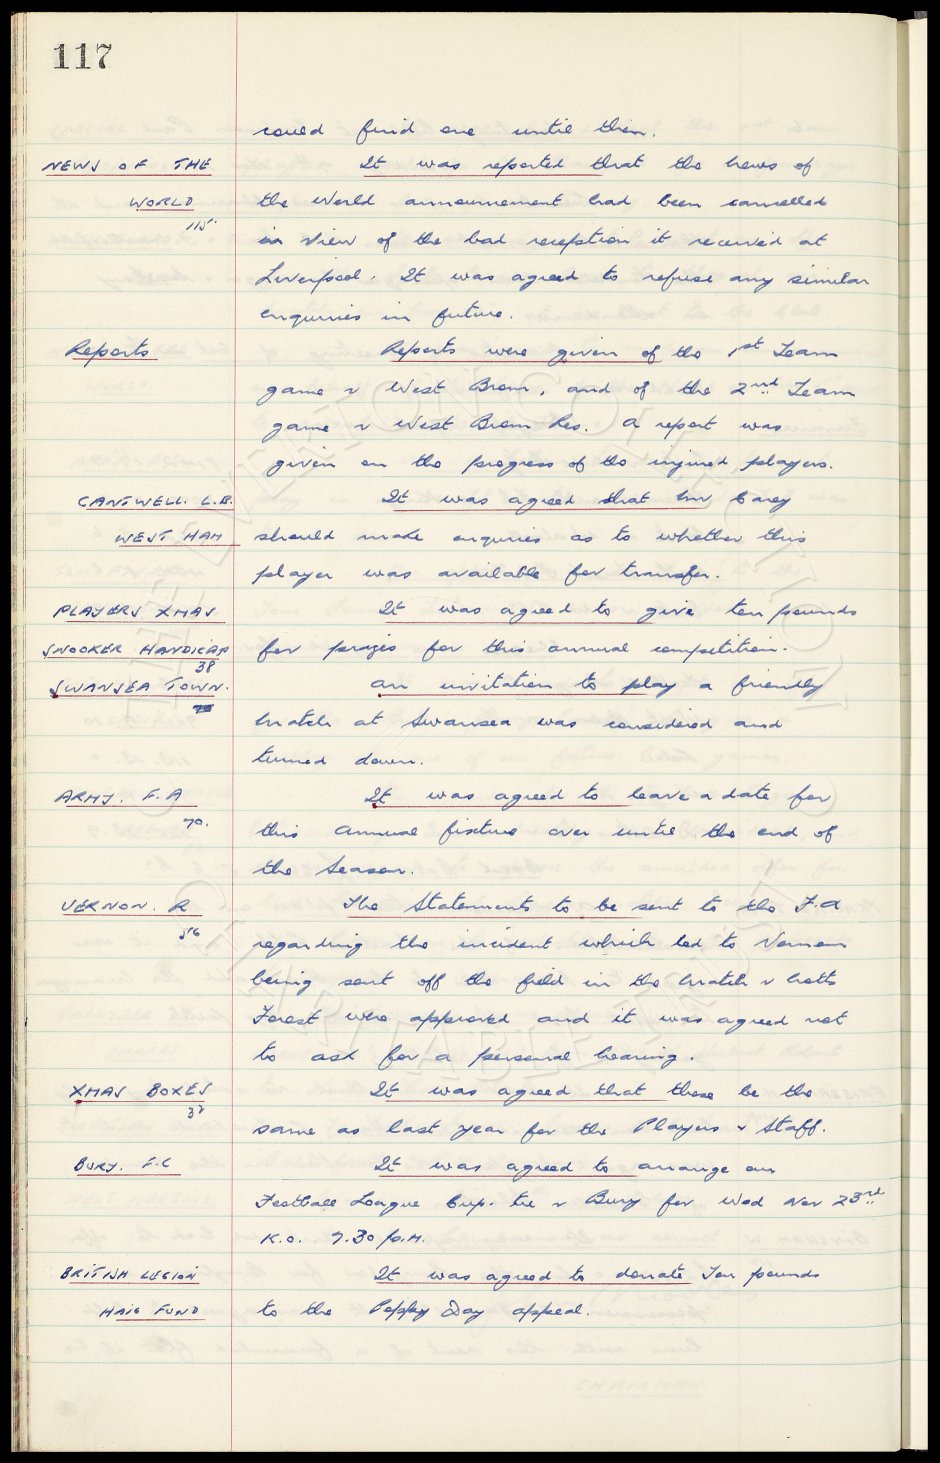 117
could find one until then.
NEWS OF THE It was reported that the News of
WORLD the World announcement had been cancelled
115. in view of the bad reception it received at
Liverpool. It was agreed to refuse any similar
enquiries in future.
Reports Reports were given of the 1st Team
game v West Brom, and of the 2nd Team
game v West Brom Res. A report was
given on the progress of the injured players.
CANTWELL. L.B. It was agreed that Mr Carey
WEST HAM should make enquiries as to whether this
player was available for transfer.
PLAYERS XMAS It was agreed to give ten pounds
SNOOKER HANDICAP for prizes for this annual competition.
38
SWANSEA TOWN. An invitation to play a friendly
match at Swansea was considered and
turned down.
ARMY. F.A It was agreed to leave a date for
70. this annual fixture over until the end of
the Season.
VERNON. R The Statements to be sent to the F.A
56 regarding the incident which led to Vernon
being sent off the field in the match v Notts
Forest were approved and it was agreed not
to ask for a personal hearing.
XMAS BOXES It was agreed that these be the
38 same as last year for the Players & Staff.
BURY. F.C It was agreed to arrange our
Football League Cup. tie v Bury for Wed Nov 23rd
K.O. 7.30 p.m.
BRITISH LEGION It was agreed to donate Ten pounds
HAIG FUND to the Poppy Day appeal.